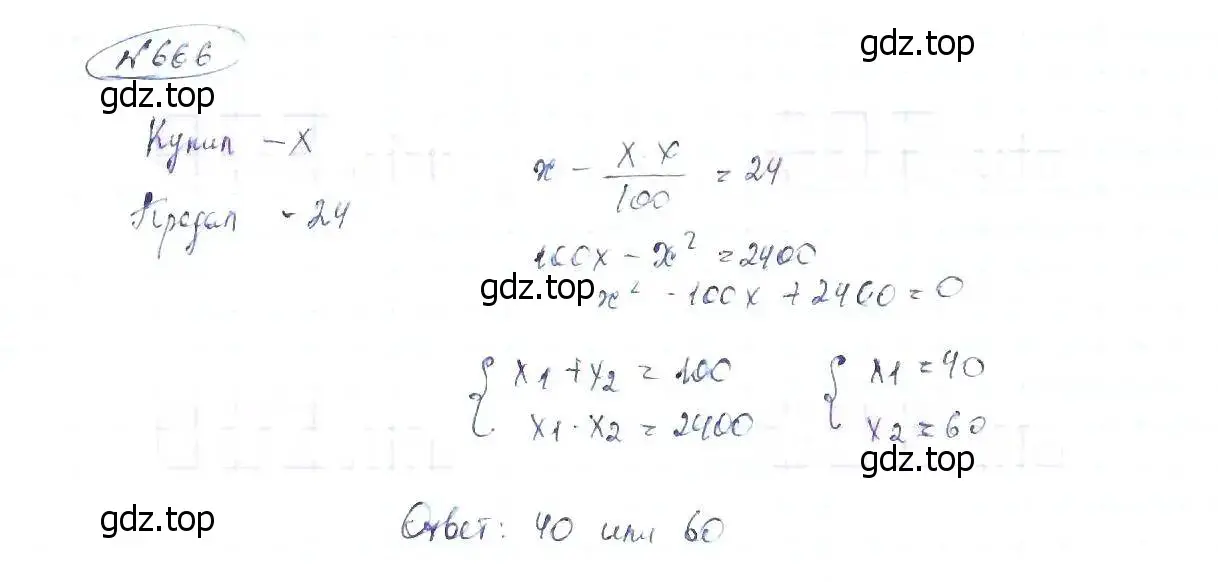 №666
gdz.top
gdz.top
Купил - x
Продал - 24
x - x·x/100 = 24
100x - x² = 2400
gdz.top
x² - 100x + 2400 = 0
{ x1 + x2 = 100
x1 · x2 = 2400
{ x1 = 40
x2 = 60
gdz.top
gdz.top
Ответ: 40 или 60